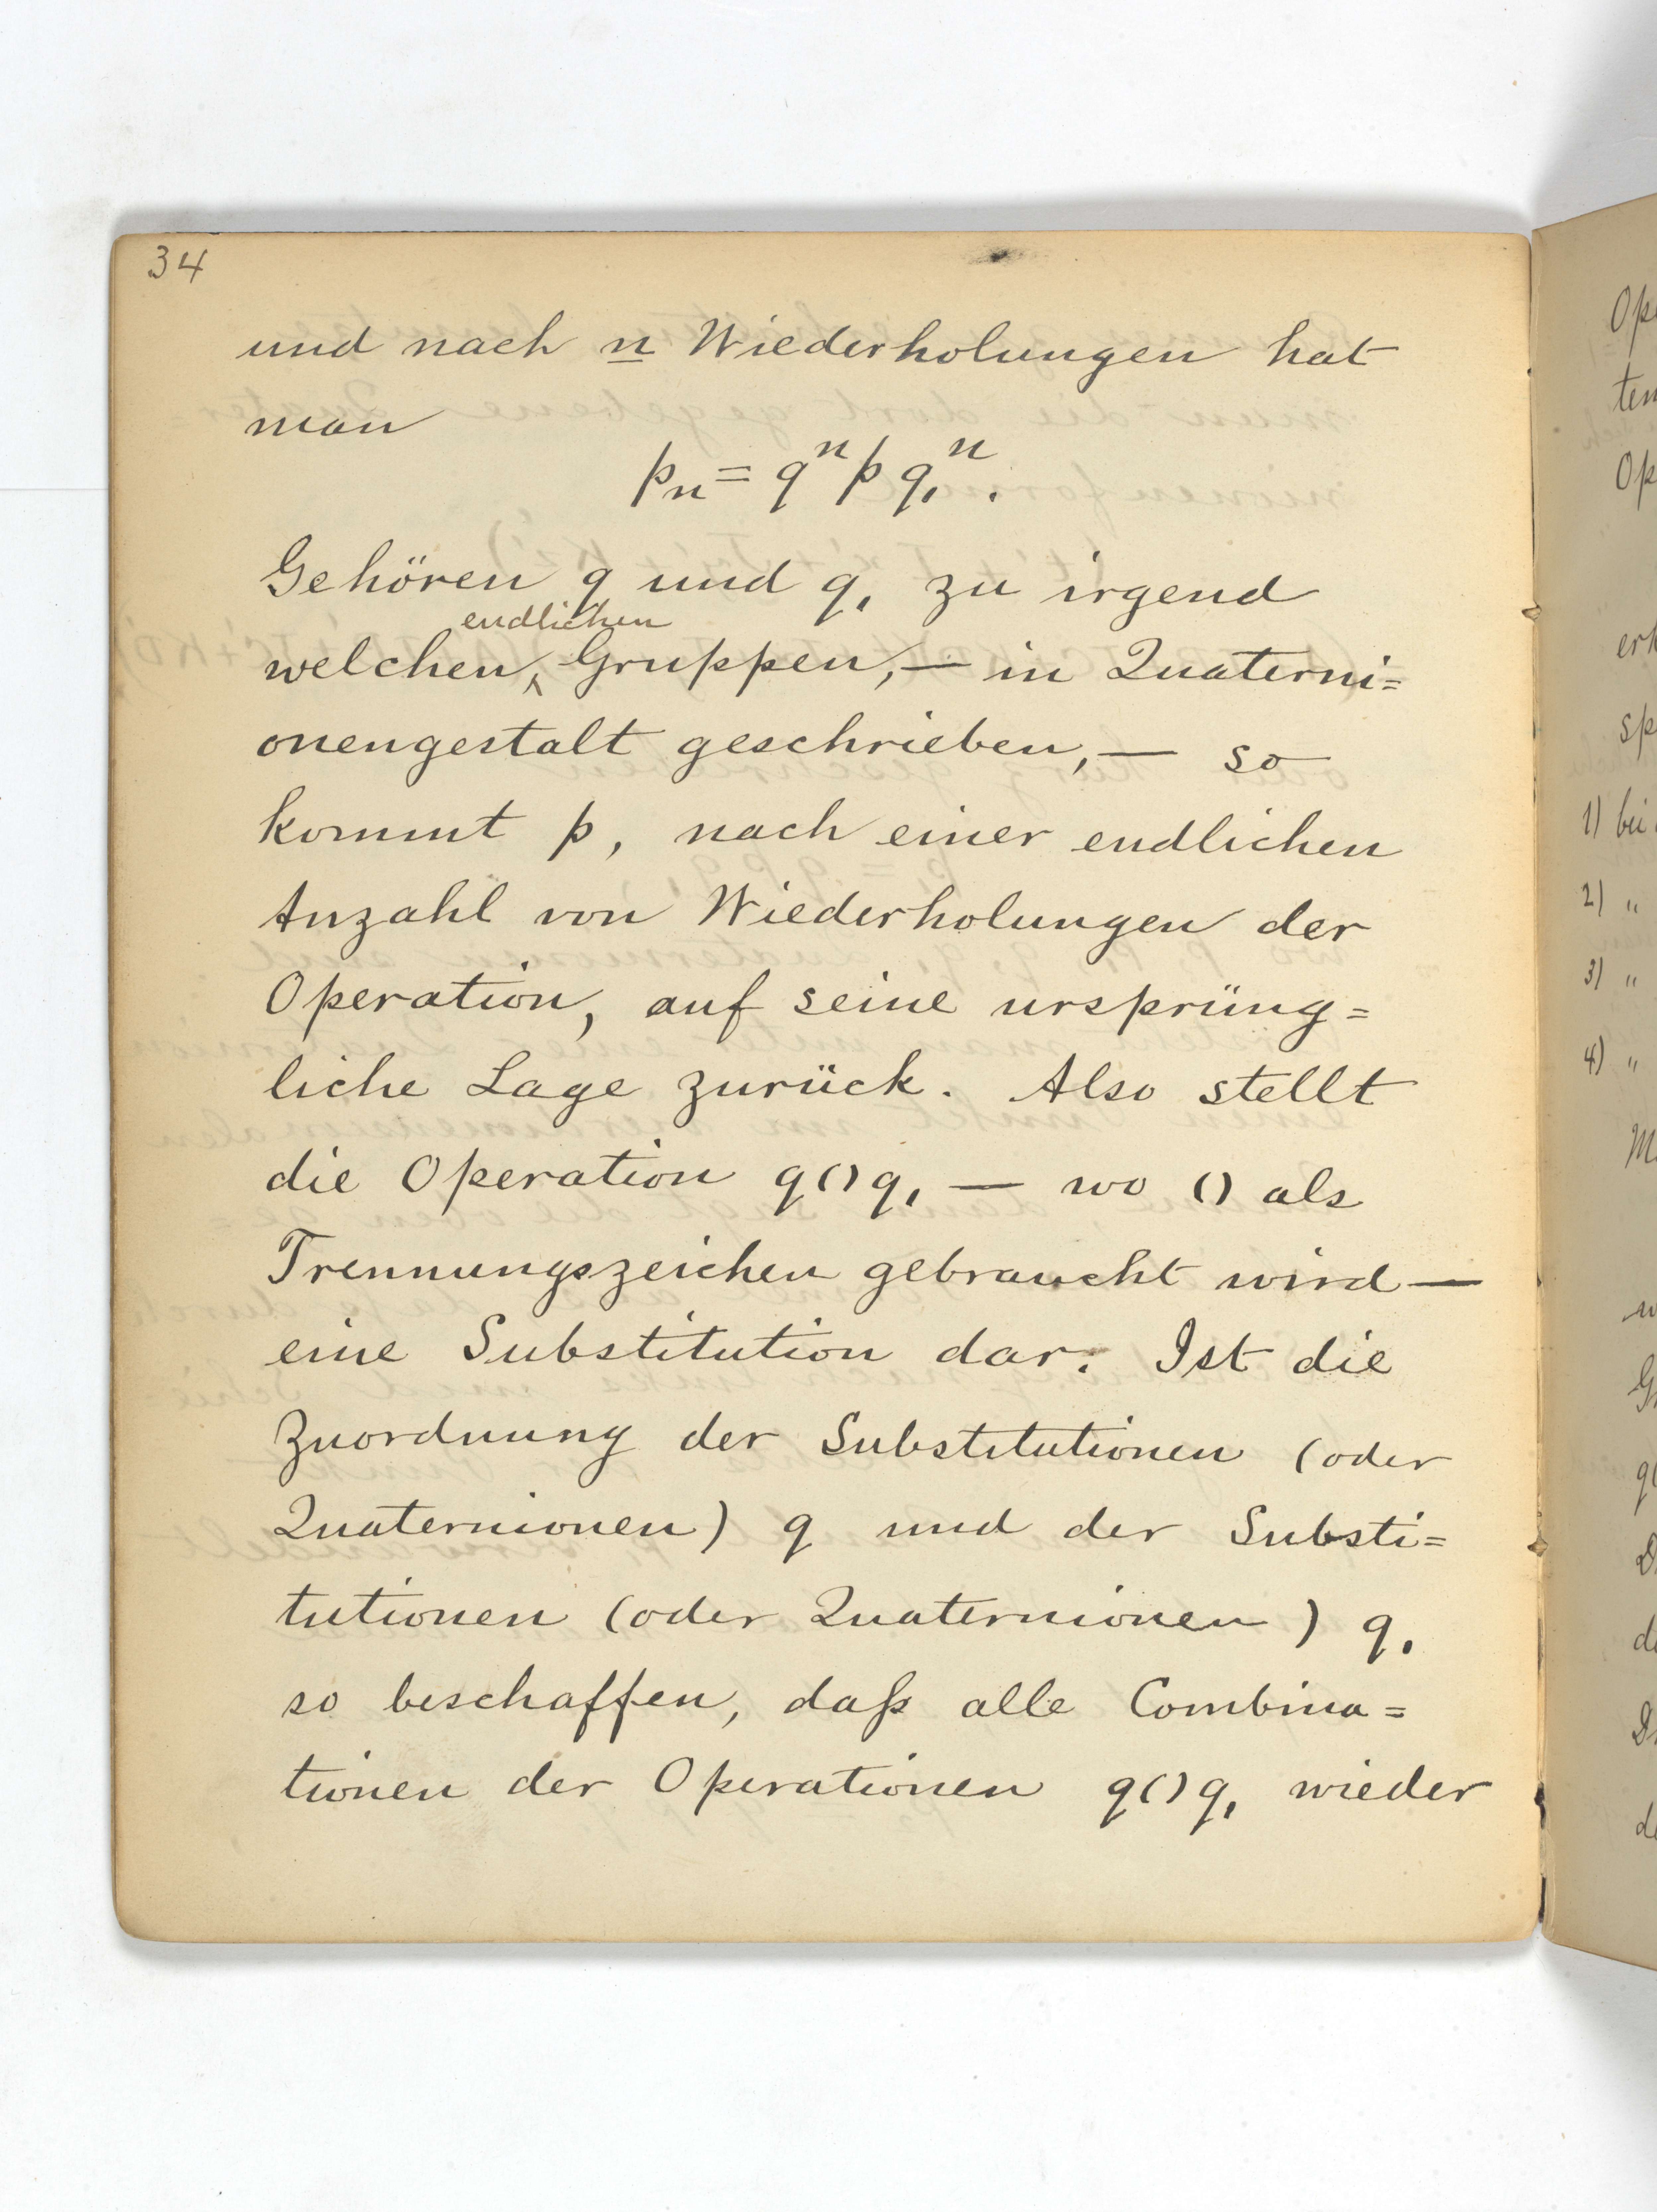 34
und nach n Wiederholungen hat
man
pₙ = qⁿ p q₁ⁿ.
Gehören q und q₁ zu irgend
endlichen
welchen Gruppen, — in Quaterni=
onengestalt geschrieben, — so
kommt p, nach einer endlichen
Anzahl von Wiederholungen der
Operation, auf seine ursprüng=
liche Lage zurück. Also stellt
die Operation q()q₁ — wo () als
Trennungszeichen gebraucht wird —
eine Substitution dar. Ist die
Zuordnung der Substitutionen (oder
Quaternionen) q und der Substi=
tutionen (oder Quaternionen) q₁
so beschaffen, daß alle Combina=
tionen der Operationen q()q₁ wieder
1) bei
2) "
3) "
4) "